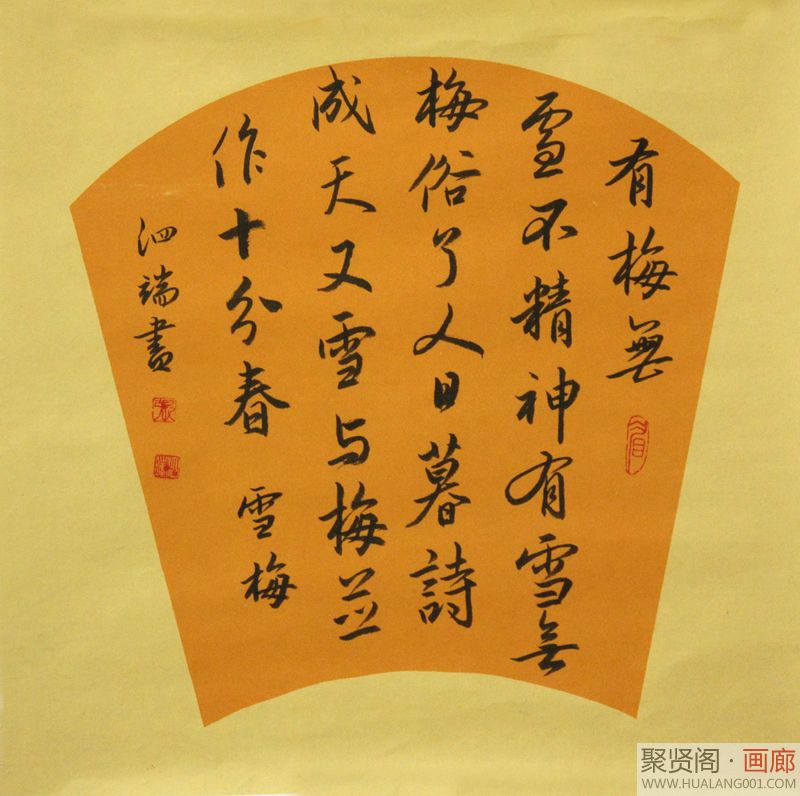 有梅無
雪不精神有雪無
梅俗了人日暮詩
成天又雪与梅並
作十分春 雪梅
泗端書
聚贤阁·画廊
WWW.HUALANG001.COM